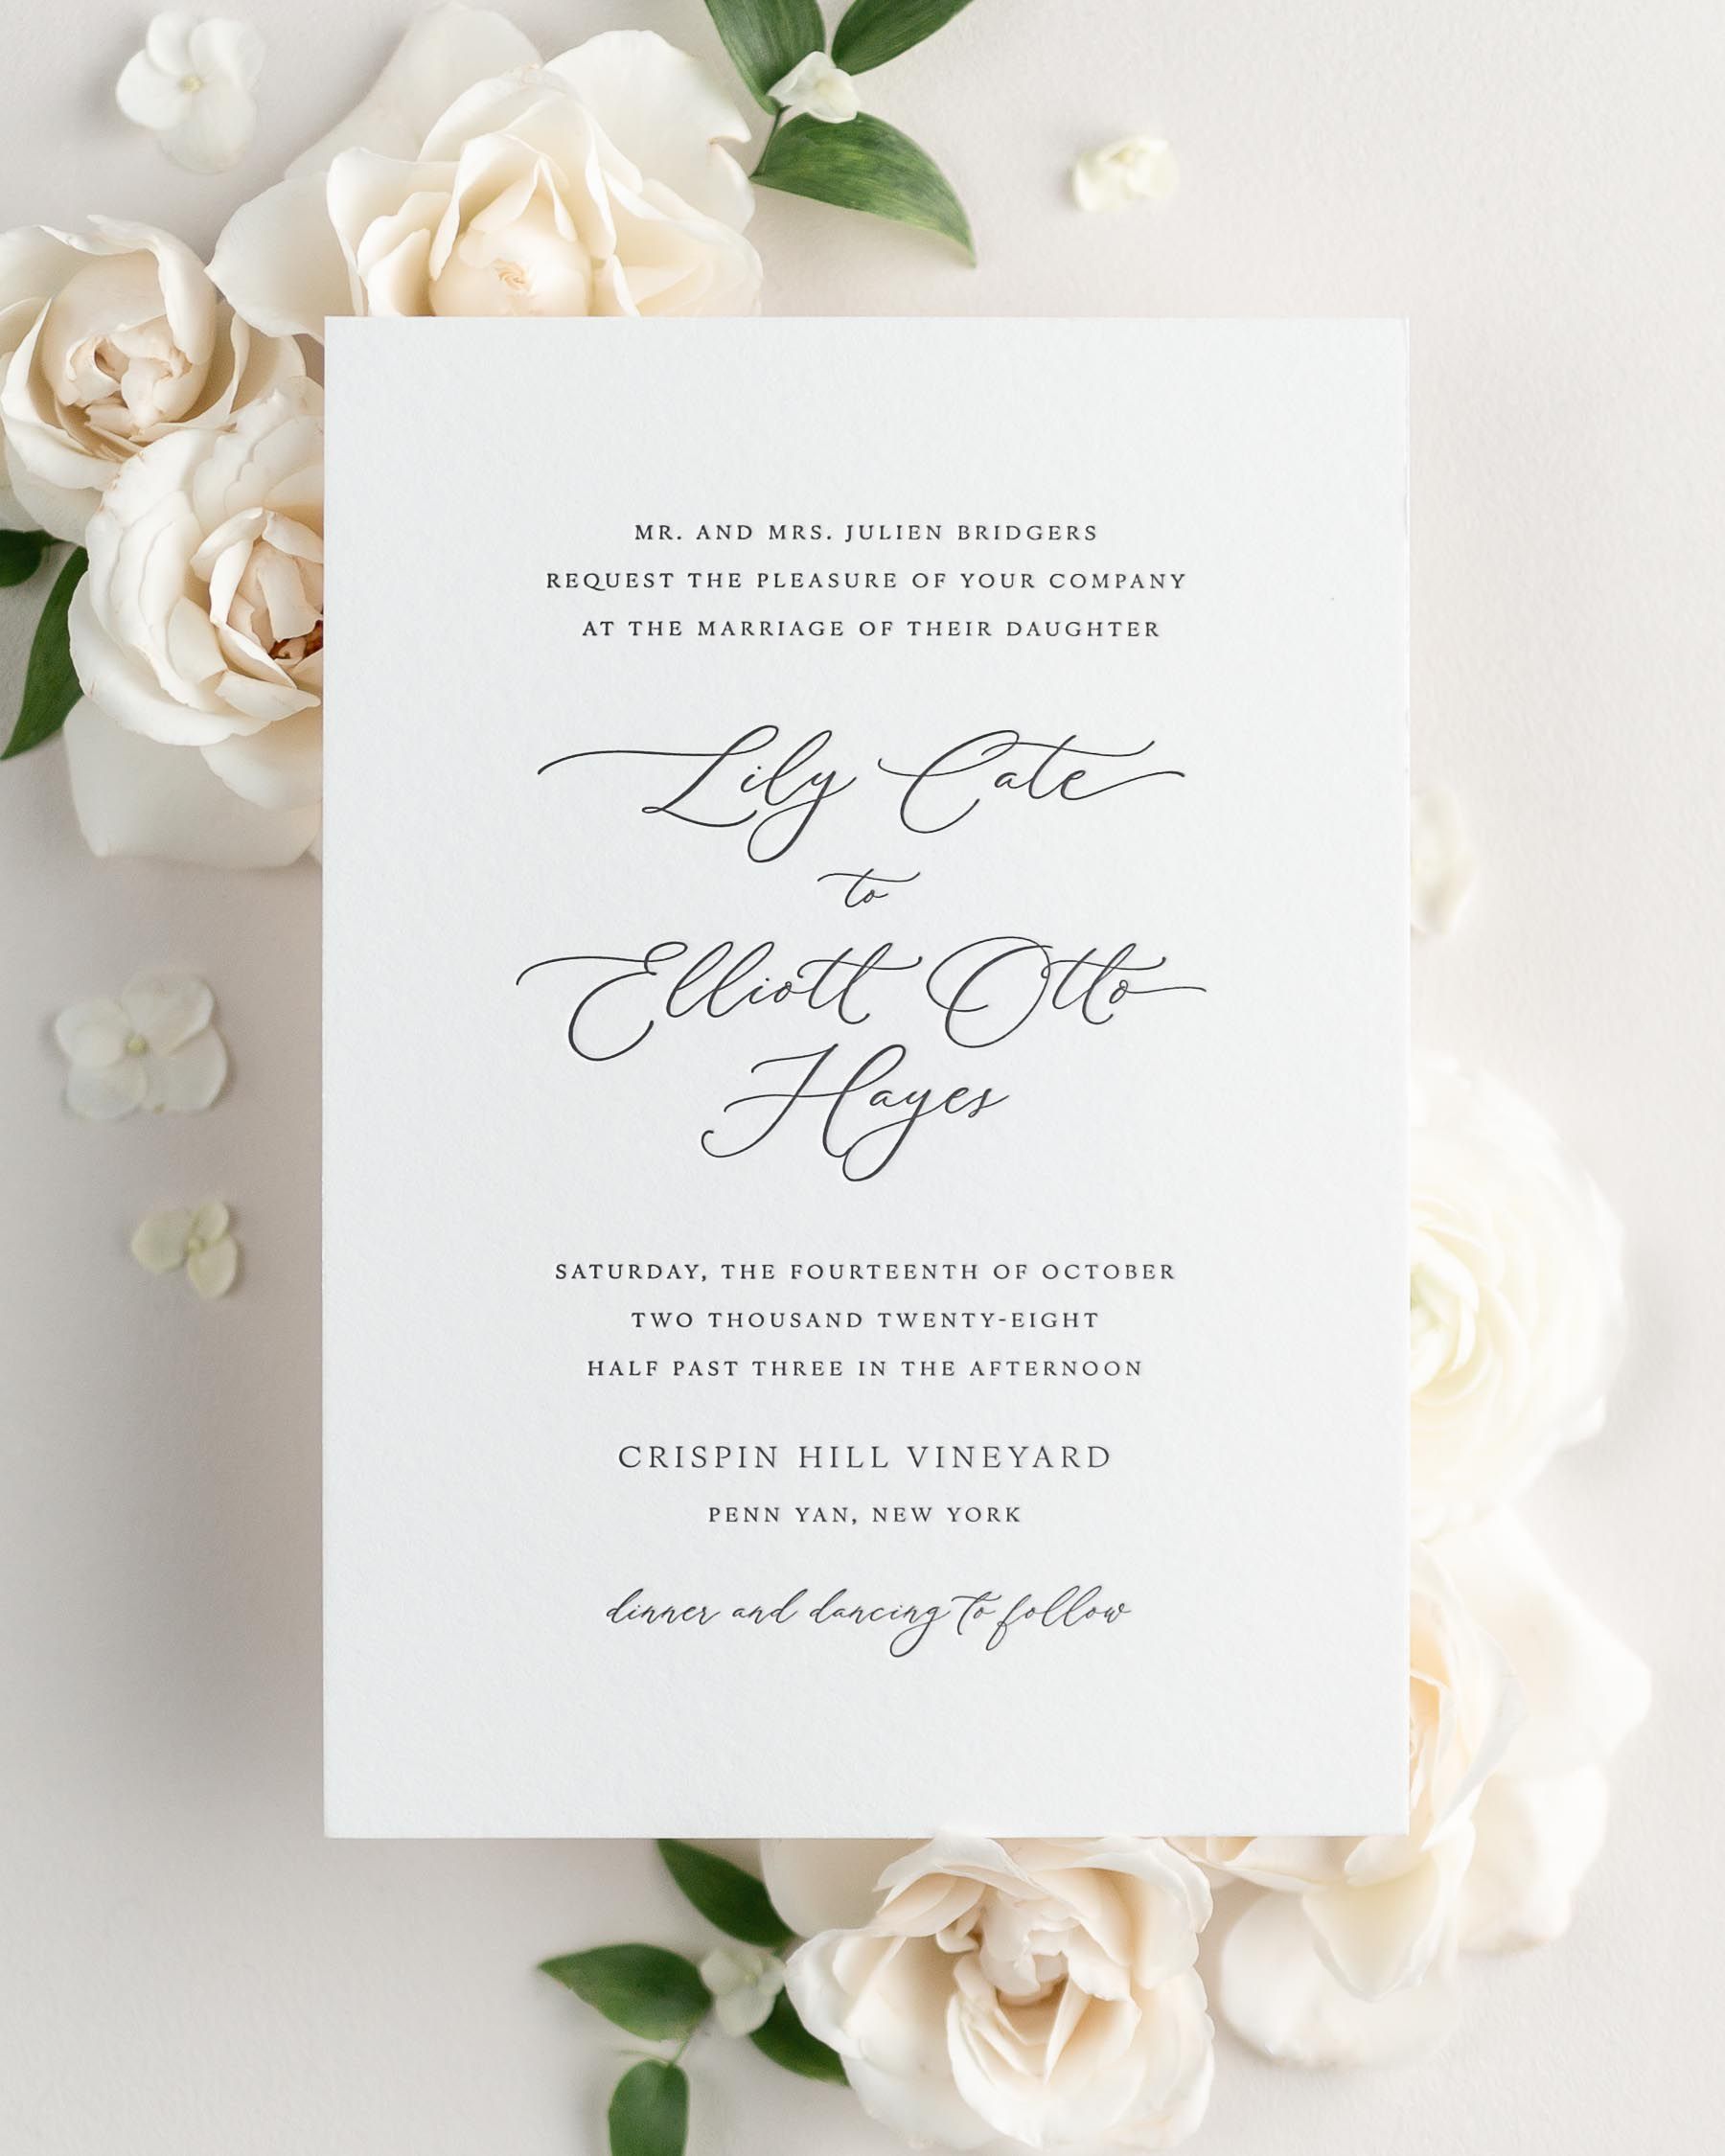 MR. AND MRS. JULIEN BRIDGERS
REQUEST THE PLEASURE OF YOUR COMPANY
AT THE MARRIAGE OF THEIR DAUGHTER
Lily Cate
to
Elliott Otto
Hayes
SATURDAY, THE FOURTEENTH OF OCTOBER
TWO THOUSAND TWENTY-EIGHT
HALF PAST THREE IN THE AFTERNOON
CRISPIN HILL VINEYARD
PENN YAN, NEW YORK
dinner and dancing to follow